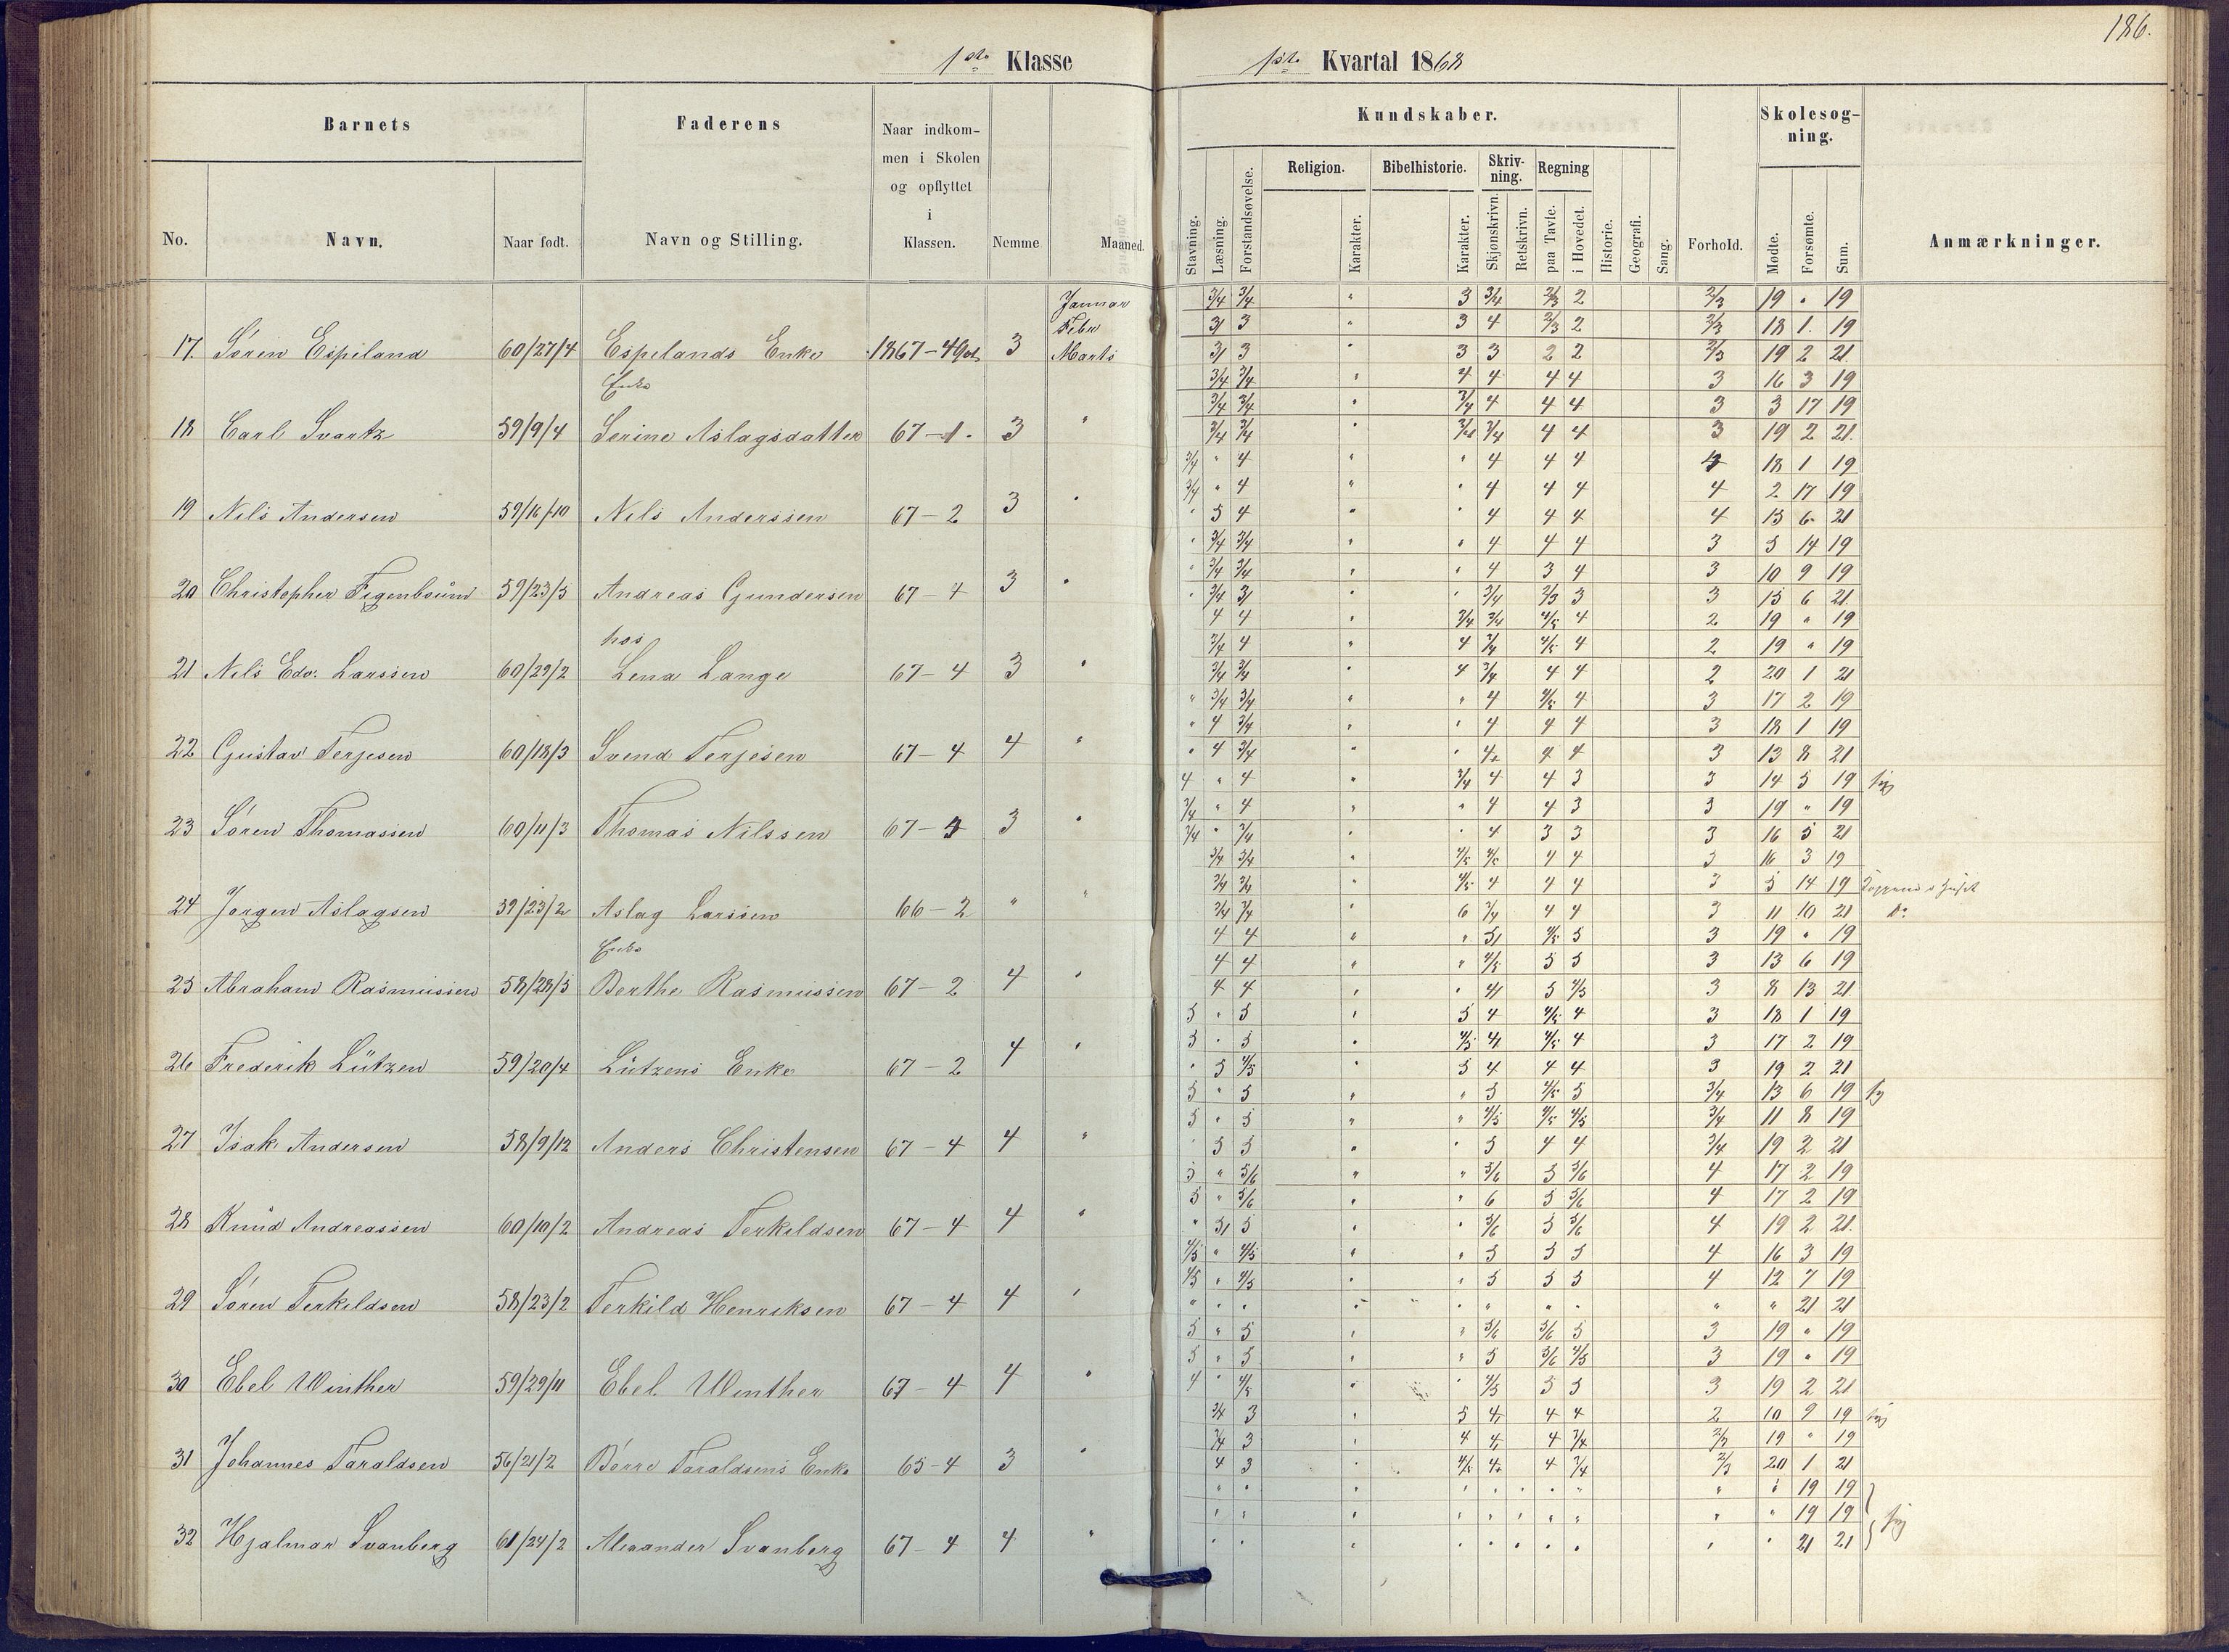 186.
1ste Klasse
1ste Kvartal 1868
Barnets
Faderens
Naar indkommen i Skolen og opflyttet i Klassen.
Nemme
Maaned.
Kundskaber.
Skolesogning.
No.
Navn.
Naar født.
Navn og Stilling.
Stavning.
Læsning.
Forstandsøvelse.
Religion.
Karakter.
Bibelhistorie.
Karakter.
Skrivning.
Skjønskrivn.
Retskrivn.
Regning
paa Tavle.
i Hovedet.
Historie.
Geografi.
Sang.
Forhold.
Mødte.
Forsømte.
Sum.
Anmærkninger.
Januar 3/4 3/4 " 3 3/4 2/3 2 2/3 19 " 19
Febr 3 3 " 3 4 2/3 2 2/3 18 1 19
17. Søren Espeland 60/27/4 Espelands Enke 1867-4 3 Marts 3 3 " 3 3 2 2 2/3 19 2 21
3/4 3/4 " 4 4 4 4 3 16 3 19
Enke
3/4 3/4 " 3/4 4 4 4 3 3 17 19
18 Carl Svartz 59/9/4 Serine Aslagsdatter 67-1 3 " 3/4 3/4 " 3/4 3/4 4 4 3 19 2 21
3/4 " 4 " " 4 4 4 4 18 1 19
3/4 " 4 " " 4 4 4 4 2 17 19
19 Nils Andersen 59/16/10 Nils Anderssen 67-2 3 " " 5 4 " " 4 4 4 4 15 6 21
" 3/4 3/4 " " 4 4 4 3 5 14 19
" 3/4 3/4 " " 4 3 4 3 10 9 19
20 Christopher Figenbaum 59/23/5 Andreas Gundersen 67-4 3 " " 3/4 3 " " 3/4 2/3 3 3 15 6 21
4 4 " 3/4 3/4 4/5 4 2 19 " 19
hos
3/4 4 " 4 3/4 4/5 4 2 19 " 19
21 Nils Edv. Larssen 60/29/2 Lena Lange 67-4 3 " 3/4 3/4 " 4 3/4 4 4 2 20 1 21
" 3/4 3/4 " " 4 4/5 4 3 17 2 19
" 4 3/4 " " 4 4 4 3 18 1 19
22 Gustav Terjesen 60/18/3 Svend Terjesen 67-4 4 " " 4 3/4 " " 4 4 4 3 13 8 21
4 " 4 " 3/4 4 4 3 3 14 5 19 syg
3/4 " 4 " " 4 4 3 3 19 " 19
23 Søren Thomassen 60/11/3 Thomas Nilssen 67-4 3 " 3/4 " 3/4 " " 4 3 3 3 16 5 21
3/4 3/4 " 4/5 4/5 4 4 3 16 3 19
3/4 3/4 " 4/5 4 4 4 3 5 14 19
24 Jørgen Aslagsen 59/23/2 Aslag Larssen 66-2 " " 3/4 3/4 " 6 3/4 4 4 3 11 10 21 Do
4 4 " " 5 4/5 5 3 19 " 19
Enke
4 4 " " 4/5 5 5 3 13 6 19
25 Abraham Rasmussen 58/28/5 Berthe Rasmussen 67-2 4 " 4 4 " " 4 5 4/5 3 8 13 21
5 " 5 " 5 4 4/5 4 3 18 1 19
5 " 5 " 4/5 4 4/5 4 3 17 2 19
26 Frederik Lützen 59/20/4 Lützens Enke 67-2 4 " " 5 4/5 " 5 4 4 4 3 19 2 21
5 " 5 " " 5 4/5 5 3/4 13 6 19 syg
5 " 5 " " 4/5 4/5 4/5 3/4 11 8 19
27 Isak Andersen 58/9/12 Anders Christensen 67-4 4 " " 5 5 " " 5 4 4 3/4 19 2 21
5 " 5/6 " " 5/6 5 5/6 4 17 2 19
5 " 5/6 " " 6 5 5/6 4 17 2 19
28 Knud Andreassen 60/10/2 Andreas Terkildsen 67-4 4 " " 5 5 " " 5/6 5 5/6 4 19 2 21
4/5 " 4/5 " " 5 5 5 4 16 3 19
4/5 " 4/5 " " 5 5 5 4 12 7 19
29 Søren Terkildsen 58/23/2 Terkild Henriksen 67-4 4 " " " " " " " " " " " 21 21
5 " 5 " " 5/6 5/6 5 3 19 " 19
5 " 5 " " 5 5/6 4/5 3 19 " 19
30 Ebel Winther 59/29/11 Ebel Winther 67-4 4 " 4 " 4/5 " " 4/5 5 5 3 19 2 21
3/4 3 " 5 4 4 4 2 10 9 19 syg
3/4 3 " 4 4 4 3/4 2/3 19 " 19
31 Johannes Taraldsen 56/21/2 Børre Taraldsens Enke 65-4 3 " 4 3 " 4/5 4 4 3/4 2/3 20 1 21
" " " " " " " " " 19 19
" " " " " " " " " " 19 19 syg
32 Hjalmar Svanberg 61/24/2 Alexander Svanberg 67-4 4 " " " " " " " " " " " 21 21